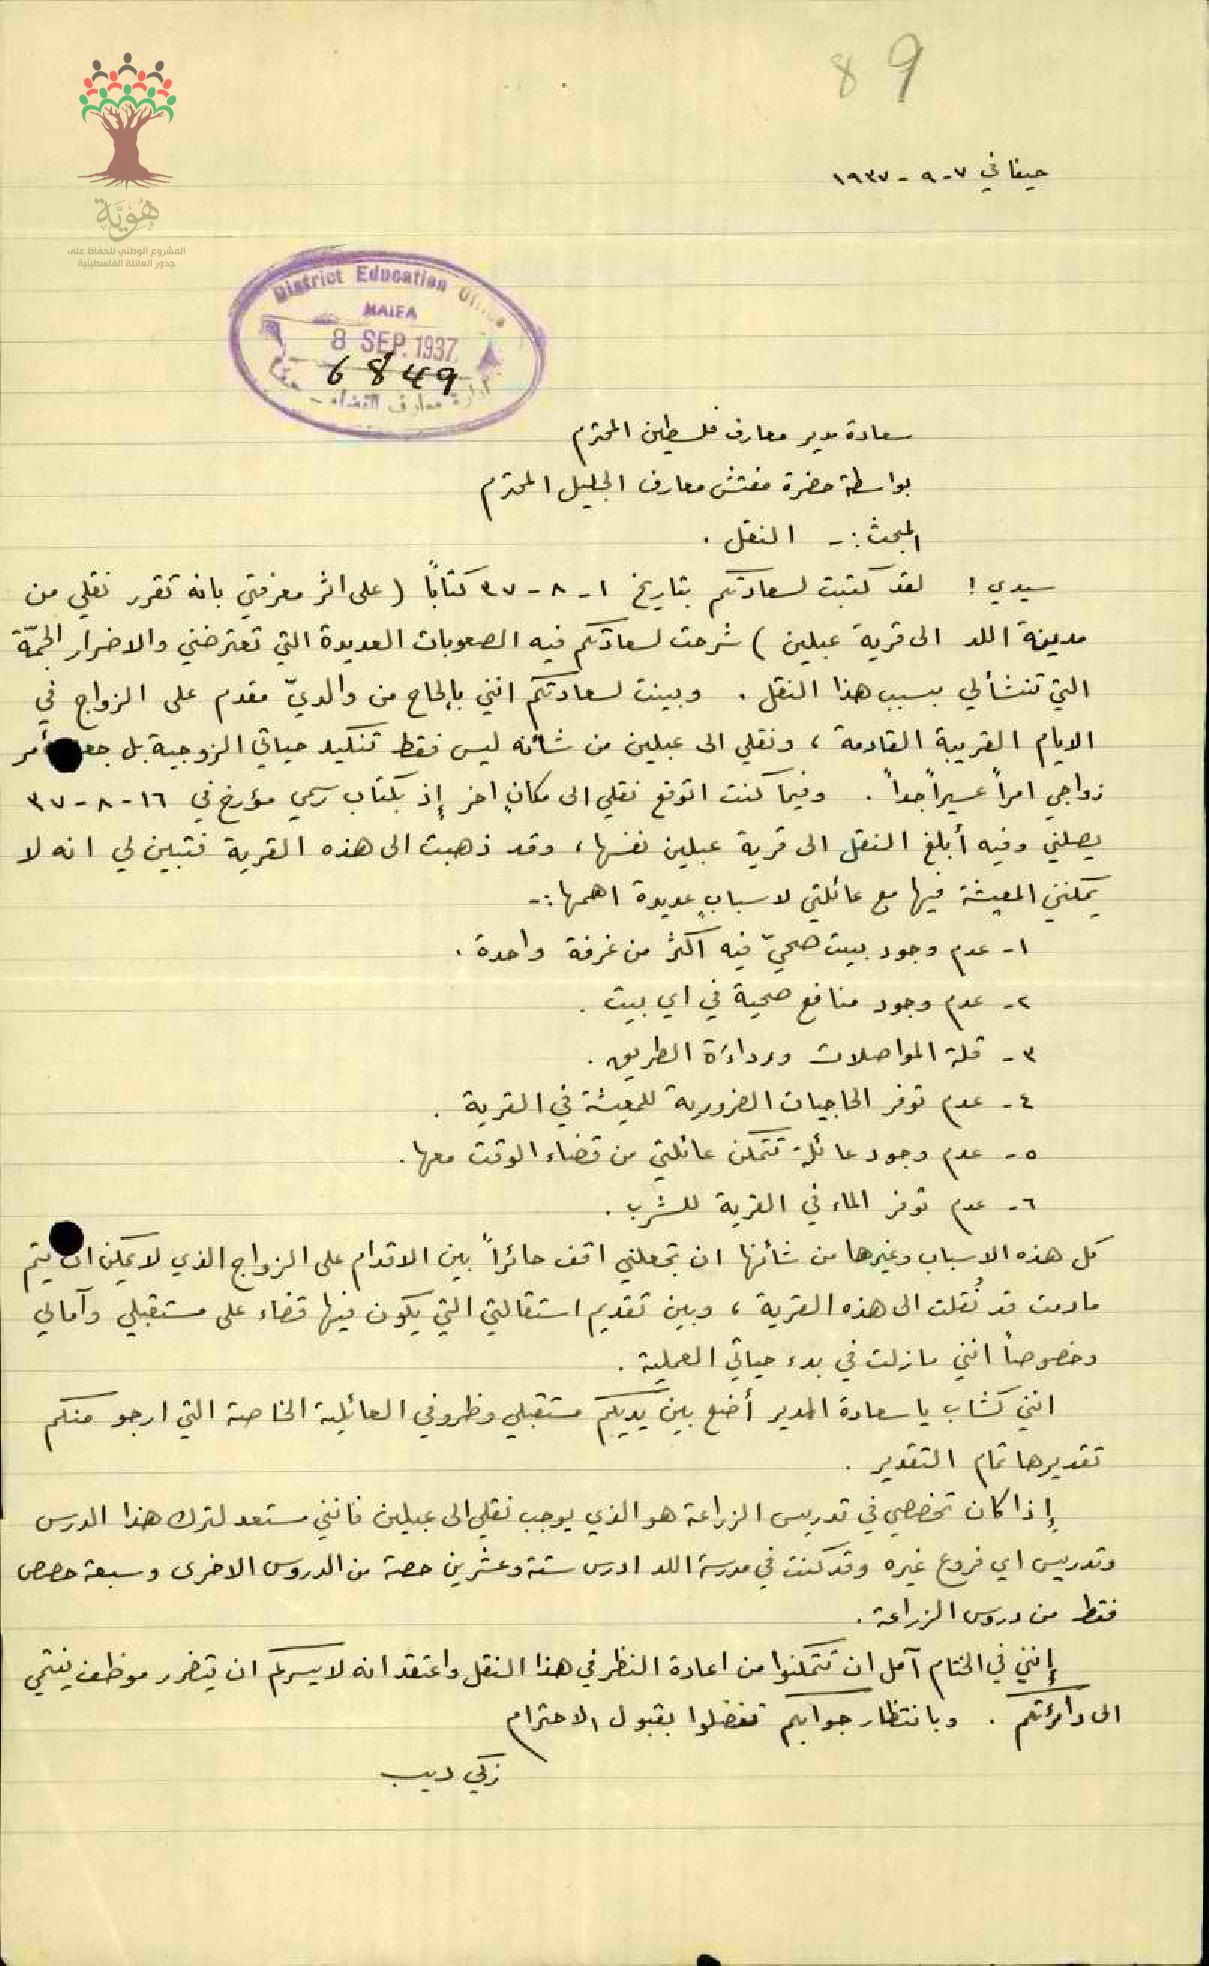 89
حيفا في ٧-٩-١٩٣٧
هُوِيَّة
المشروع الوطني للحفاظ على
جذور العائلة الفلسطينية
District Education Office
HAIFA
8 SEP. 1937
6849
ادارة معارف القضاء - حيفا
سعادة مدير معارف فلسطين المحترم
بواسطة حضرة مفتش معارف الجليل المحترم
المبحث :- النقل .
سيدي ! لقد كتبت لسعادتكم بتاريخ ١-٨-٣٧ كتاباً ( على اثر معرفتي بانه تقرر نقلي من
مدينة اللد الى قرية عبلين ) شرحت لسعادتكم فيه الصعوبات العديدة التي تعترضني والاضرار الجمّة
التي تنشأ لي بسبب هذا النقل . وبينت لسعادتكم انني بإلحاح من والديّ مقدم على الزواج في
الايام القريبة القادمة ، ونقلي الى عبلين من شأنه ليس فقط تنكيد حياتي الزوجية بل جعل أمر
زواجي امراً عسيراً جداً . وفيما كنت اتوقع نقلي الى مكانٍ اخر إذ بكتاب رسمي مؤرخ في ١٦-٨-٣٧
يصلني وفيه أبلغ النقل الى قرية عبلين نفسها ، وقد ذهبت الى هذه القرية فتبين لي انه لا
يمكنني المعيشة فيها مع عائلتي لاسبابٍ عديدة اهمها :-
١- عدم وجود بيت صحيّ فيه اكثر من غرفة واحدة .
٢- عدم وجود منافع صحية في اي بيت .
٣- قلة المواصلات ورداءة الطريق .
٤- عدم توفر الحاجيات الضرورية للمعيشة في القرية .
٥- عدم وجود عائلة تتمكن عائلتي من قضاء الوقت معها .
٦- عدم توفر الماء في القرية للشرب .
كل هذه الاسباب وغيرها من شأنها ان تجعلني اقف حائراً بين الاقدام على الزواج الذي لا يمكن ان يتم
مادمت قد نُقلت الى هذه القرية ، وبين تقديم استقالتي التي يكون فيها قضاء على مستقبلي وآمالي
وخصوصاً انني مازلت في بدء حياتي العملية .
انني كشاب يا سعادة المدير أضع بين يديكم مستقبلي وظروفي العائلية الخاصة التي ارجو منكم
تقديرها تمام التقدير .
إذا كان تخصصي في تدريس الزراعة هو الذي يوجب نقلي الى عبلين فانني مستعد لترك هذا الدرس
وتدريس اي فروع غيره وقد كنت في مدرسة اللد ادرس ستة وعشرين حصة من الدروس الاخرى وسبعة حصص
فقط من دروس الزراعة .
إنني في الختام آمل ان تتمكنوا من اعادة النظر في هذا النقل واعتقد انه لا يسركم ان يتضرر موظف ينتمي
الى دائرتكم . وبانتظار جوابكم تفضلوا بقبول الاحترام
زكي ديب